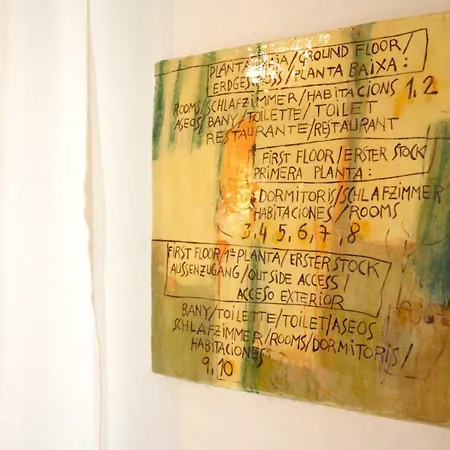 PLANTA BAIXA/GROUND FLOOR/
ERDGESCHOSS/PLANTA BAIXA:
ROOMS/SCHLAFZIMMER/HABITACIONS 1,2
ASEOS/BANY/TOILETTE/TOILET
RESTAURANTE/RESTAURANT
FIRST FLOOR/ERSTER STOCK
PRIMERA PLANTA:
DORMITORIS/SCHLAFZIMMER
HABITACIONES/ROOMS
3,4,5,6,7,8
FIRST FLOOR/1ª PLANTA/ERSTER STOCK
AUSSENZUGANG/OUTSIDE ACCESS/
ACCESO EXTERIOR
BANY/TOILETTE/TOILET/ASEOS
SCHLAFZIMMER/ROOMS/DORMITORIS/
HABITACIONES
9,10